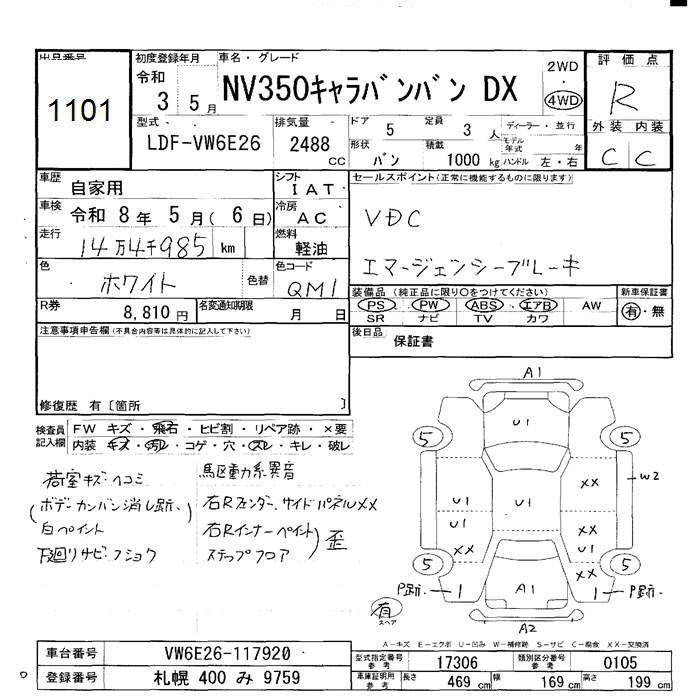 出品番号 初度登録年月 車名・グレード 評価点
1101 令和 3 年 5 月 NV350キャラバンバン DX 2WD ・ 4WD R
型式 排気量 ドア 5 定員 3 人 ディーラー・並行 外装 内装
LDF-VW6E26 2488 CC 形状 バン 積載 1000 kg モデル年式 年 ハンドル 左・右 C C
車歴 自家用 シフト IAT セールスポイント(正常に機能するものに限ります)
車検 令和 8 年 5 月( 6 日) 冷房 AC VDC
走行 14万4千985 km 燃料 軽油
色 ホワイト 色替 色コード QM1 エマージェンシーブレーキ
R券 8,810 円 名変通知期限 月 日
装備品(純正品に限り○をつけてください) 新車保証書
PS PW ABS エアB AW 有・無
SR ナビ TV カワ
注意事項申告欄(不具合内容等は具体的に記入して下さい)
後日品 保証書
修復歴 有〔箇所 〕
検査員記入欄 FW キズ・飛石・ヒビ割・リペア跡・×要
内装 キズ・汚れ・コゲ・穴・スレ・キレ・破レ
荷室キズ・ヘコミ
(ボデーカンバン消し跡、)
白ペイント
下廻りサビ・フショク
右Rフェンダー、サイドパネルXX
右Rインナーペイント
ステップフロア
歪
A1
U1
5 5
XX
W2
U1 U1
U1 XX
XX XX
5 5
P跡. 1 A1 1 P跡.
有
スペア
A2
A-キズ E-エクボ U-凹み W-補修跡 S-サビ C-腐食 XX-交換済
車台番号 VW6E26-117920 型式指定番号 参考 17306 類別区分番号 参考 0105
登録番号 札幌 400 み 9759 車庫証明用 参考 長さ 469 cm 幅 169 cm 高さ 199 cm